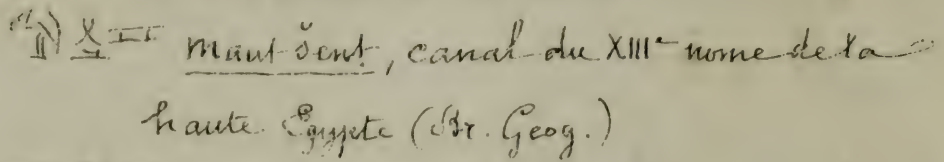 maut-šent, canal du XIIIe nome de la
haute Egypte (Br. Geog.)